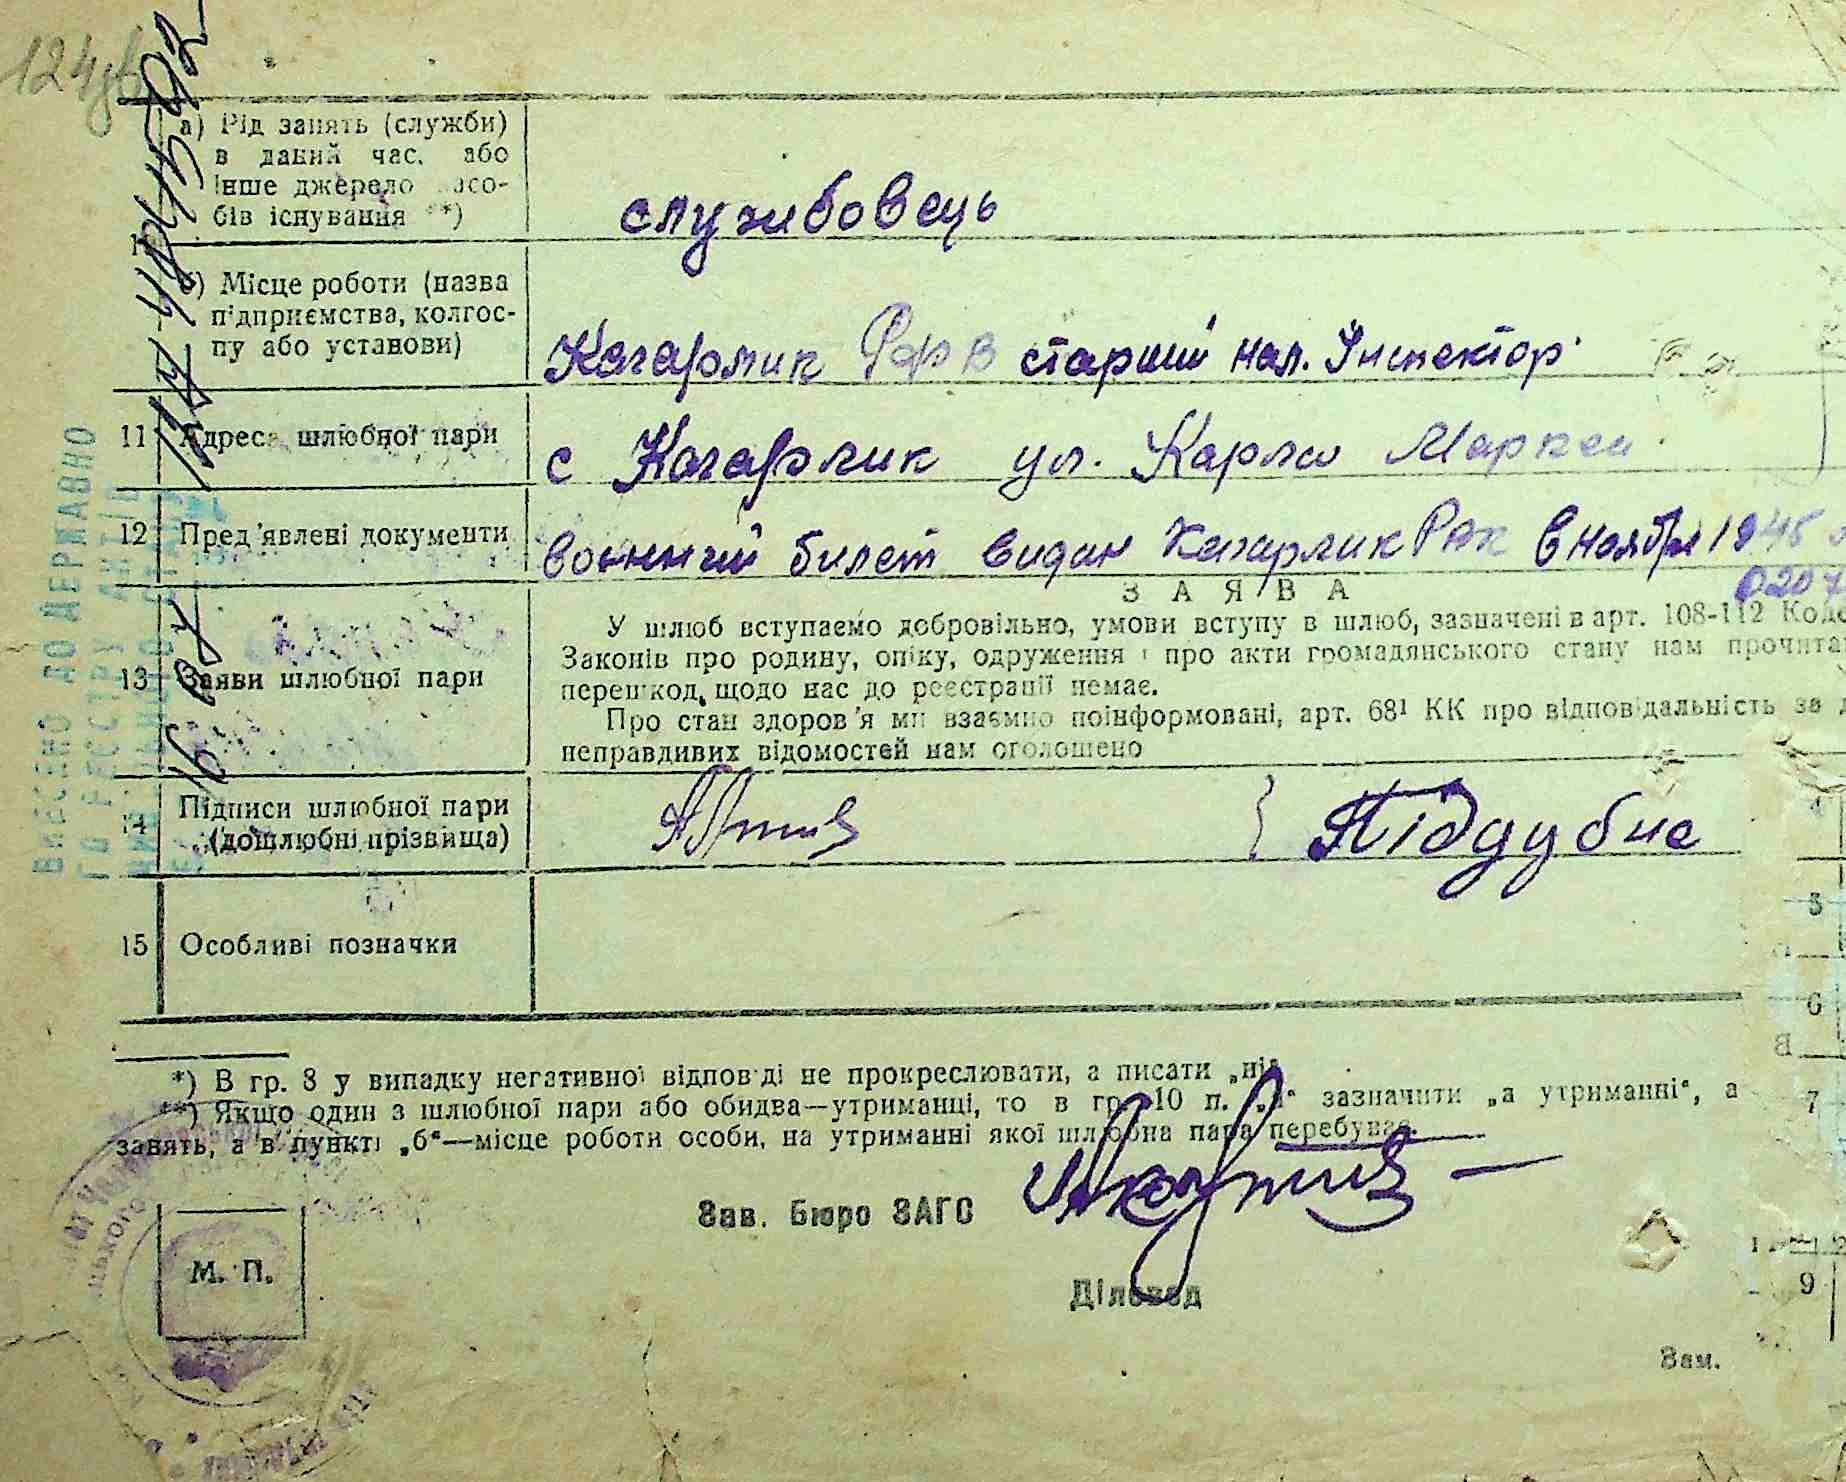 124зв
а) Рід занять (служби)
в даний час, або
інше джерело засо-
бів існування **)
службовець
Місце роботи (назва
підприємства, колгос-
пу або установи)
Кагарлик РФВ старший нал. Інспектор
11 Адреса шлюбної пари
с Кагарлик ул. Карла Маркса
12 Пред'явлені документи
военний билет видан Кагарлик РВК в ноября 1945
0207
ЗАЯВА
13 Заяви шлюбної пари
У шлюб вступаємо добровільно, умови вступу в шлюб, зазначені в арт. 108-112 Коде
Законів про родину, опіку, одруження і про акти громадянського стану нам прочита
перешкод, щодо нас до реєстрації немає.
Про стан здоров'я ми взаємно поінформовані, арт. 68¹ КК про відповідальність за д
неправдивих відомостей нам оголошено
14 Підписи шлюбної пари
(дошлюбні прізвища)
Піддубне
15 Особливі позначки
*) В гр. 8 у випадку негативної відповіді не прокреслювати, а писати „ні“
**) Якщо один з шлюбної пари або обидва—утриманці, то в гр. 10 п. „а“ зазначити „а утриманні“, а
занять, а в пункті „б“—місце роботи особи, на утриманні якої шлюбна пара перебуває.
Зав. Бюро ЗАГС
М. П.
Діловод
Зам.
ВНЕСЕНО ДО ДЕРЖАВНО
ГО РЕЄСТРУ
5
6
7
9